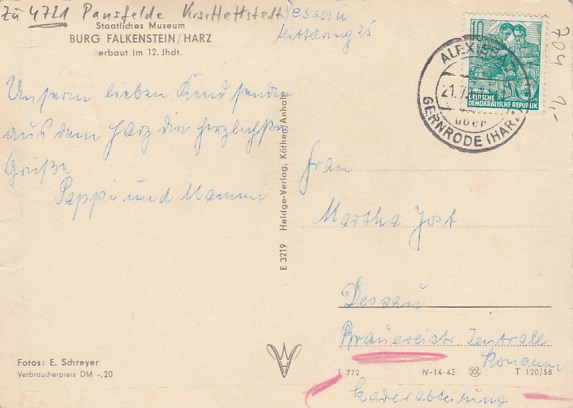 Zu 4721 Pansfelde Krs. Hettstedt
Staatliches Museum
BURG FALKENSTEIN/HARZ
erbaut im 12. Jhdt.
Dessau
Mittelring 25
704 1,-
10
DEUTSCHE
DEMOKRATISCHE REPUBLIK
21.7.
über
GERNRODE (HARZ)
Unserm lieben Kind senden
aus dem Harz die herzlichsten
Grüße
Pappi und Mammi
E 3219 Heldge-Verlag, Köthen/Anhalt
Frau
Martha Jost
Dessau
Brauerei Zentrall
Konsum
Kaderabteilung
Fotos: E. Schreyer
Verbraucherpreis DM -.20
E 772 IV-14-45 T 120/58